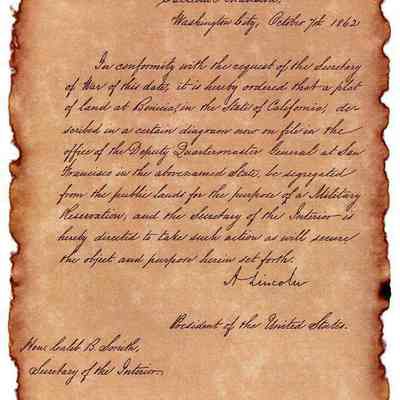 Executive Mansion,
Washington City, October 7th 1862
In conformity with the request of the Secretary
of War of this date, it is hereby ordered that a plot
of land at Benicia, in the State of California, de-
scribed in a certain diagram now on file in the
office of the Deputy Quartermaster General at San
Francisco in the abovenamed State, be segregated
from the public lands for the purpose of a Military
Reservation, and the Secretary of the Interior is
hereby directed to take such action as will secure
the object and purpose herein set forth.
A Lincoln
President of the United States.
Hon. Caleb B. Smith,
Secretary of the Interior.